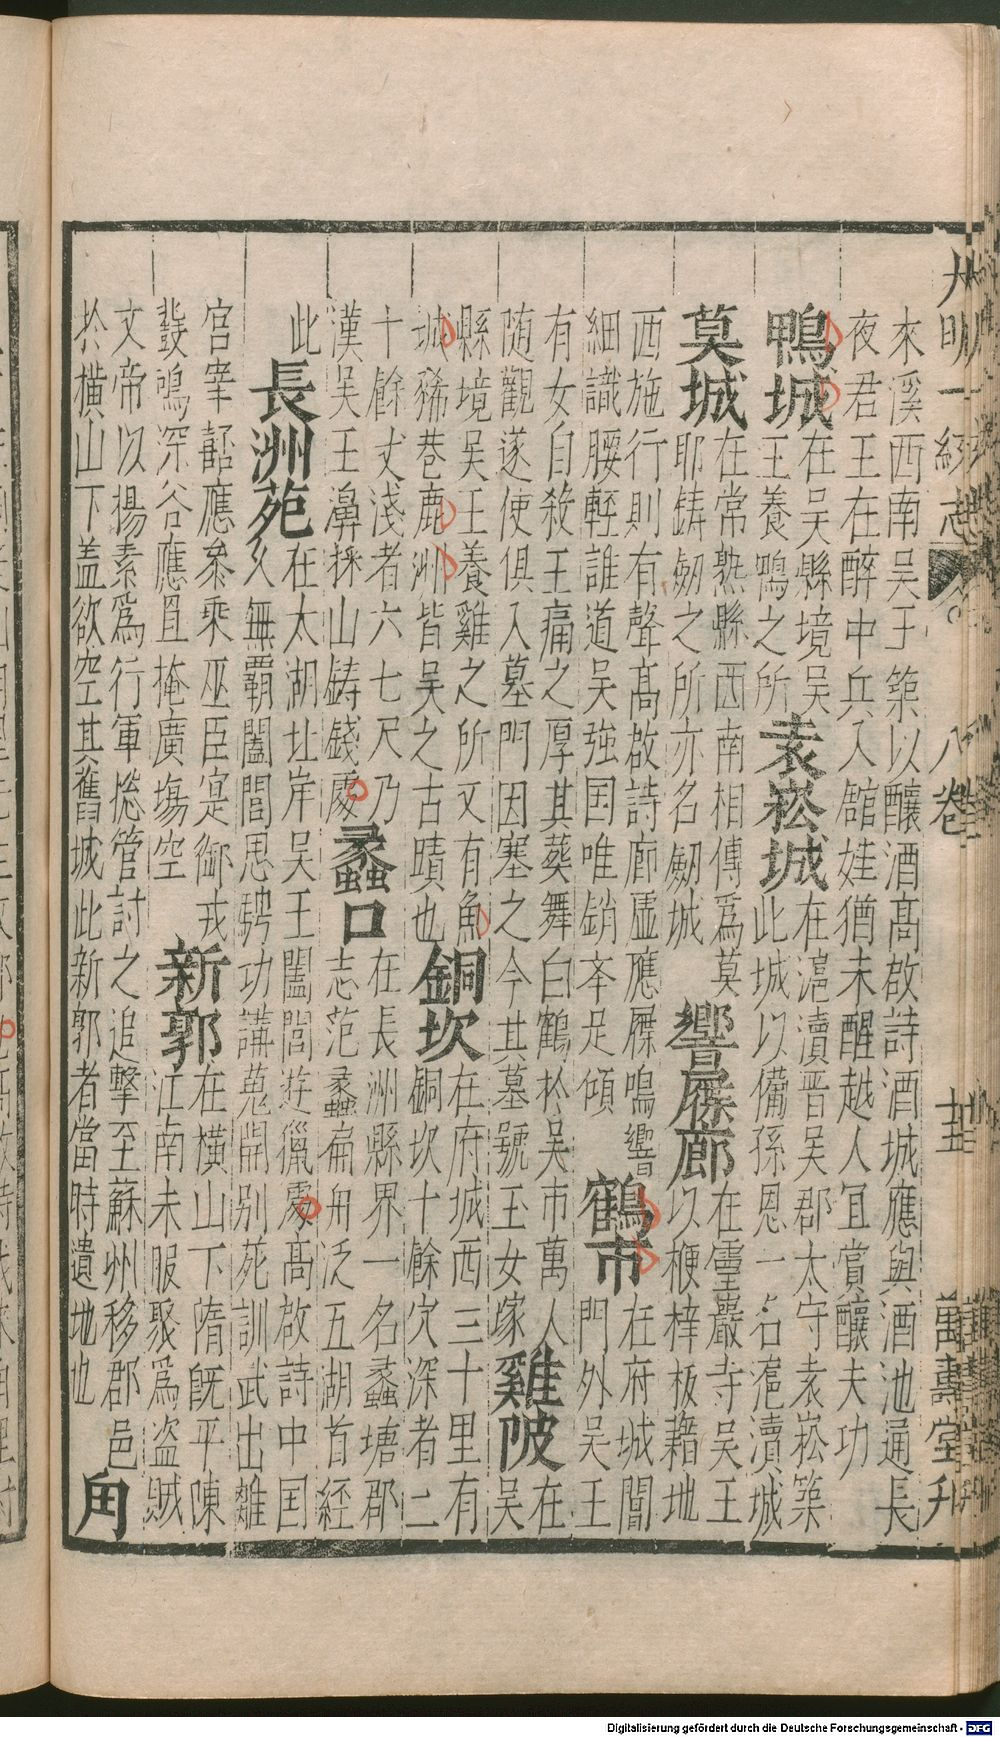 大明一統志 八卷 十五 萬壽堂刋
來溪西南吳王築以釀酒髙啟詩酒城應與酒池通長
夜君王在醉中兵入舘娃猶未醒越人宜賞釀夫功
鴨城
在吳縣境吳
王養鴨之所
袁崧城
在滬瀆晉吳郡太守袁崧築
此城以備孫恩一名滬瀆城
莫城
在常熟縣西南相傳爲莫
耶鑄劒之所亦名劒城
響屧廊
在靈巖寺吳王
以梗梓板藉地
西施行則有聲髙啟詩廊虛應屧鳴響
細識腰輕誰道吳強囯唯銷夲足傾
鶴市
在府城閶
門外吳王
有女自殺王痛之厚其葬舞白鶴於吳市萬人
随觀遂使俱入墓門因塞之今其墓號玉女冢
雞陂
在
吳
縣境吳王養雞之所又有魚
城豨巷鹿洲皆吳之古蹟也
銅坎
在府城西三十里有
銅坎十餘穴深者二
十餘丈淺者六七尺乃
漢吳王濞採山鑄錢處
蠡口
在長洲縣界一名蠡塘郡
志范蠡扁舟泛五湖首経
此
長洲苑
在太湖北岸吳王闔閭遊獵處髙啟詩中囯
久無覇闔閭思騁功講蒐開別苑訓武出離
宫宰嚭應叅乘巫臣寔御戎
鼓鴻深谷應且掩廣塲空
新郭
在橫山下隋旣平陳
江南未服聚爲盜賊
文帝以揚素爲行軍緫管討之追擊至蘇州移郡邑
於橫山下盖欲空其舊城此新郭者當時遺地也
角
Digitalisierung gefördert durch die Deutsche Forschungsgemeinschaft - DFG